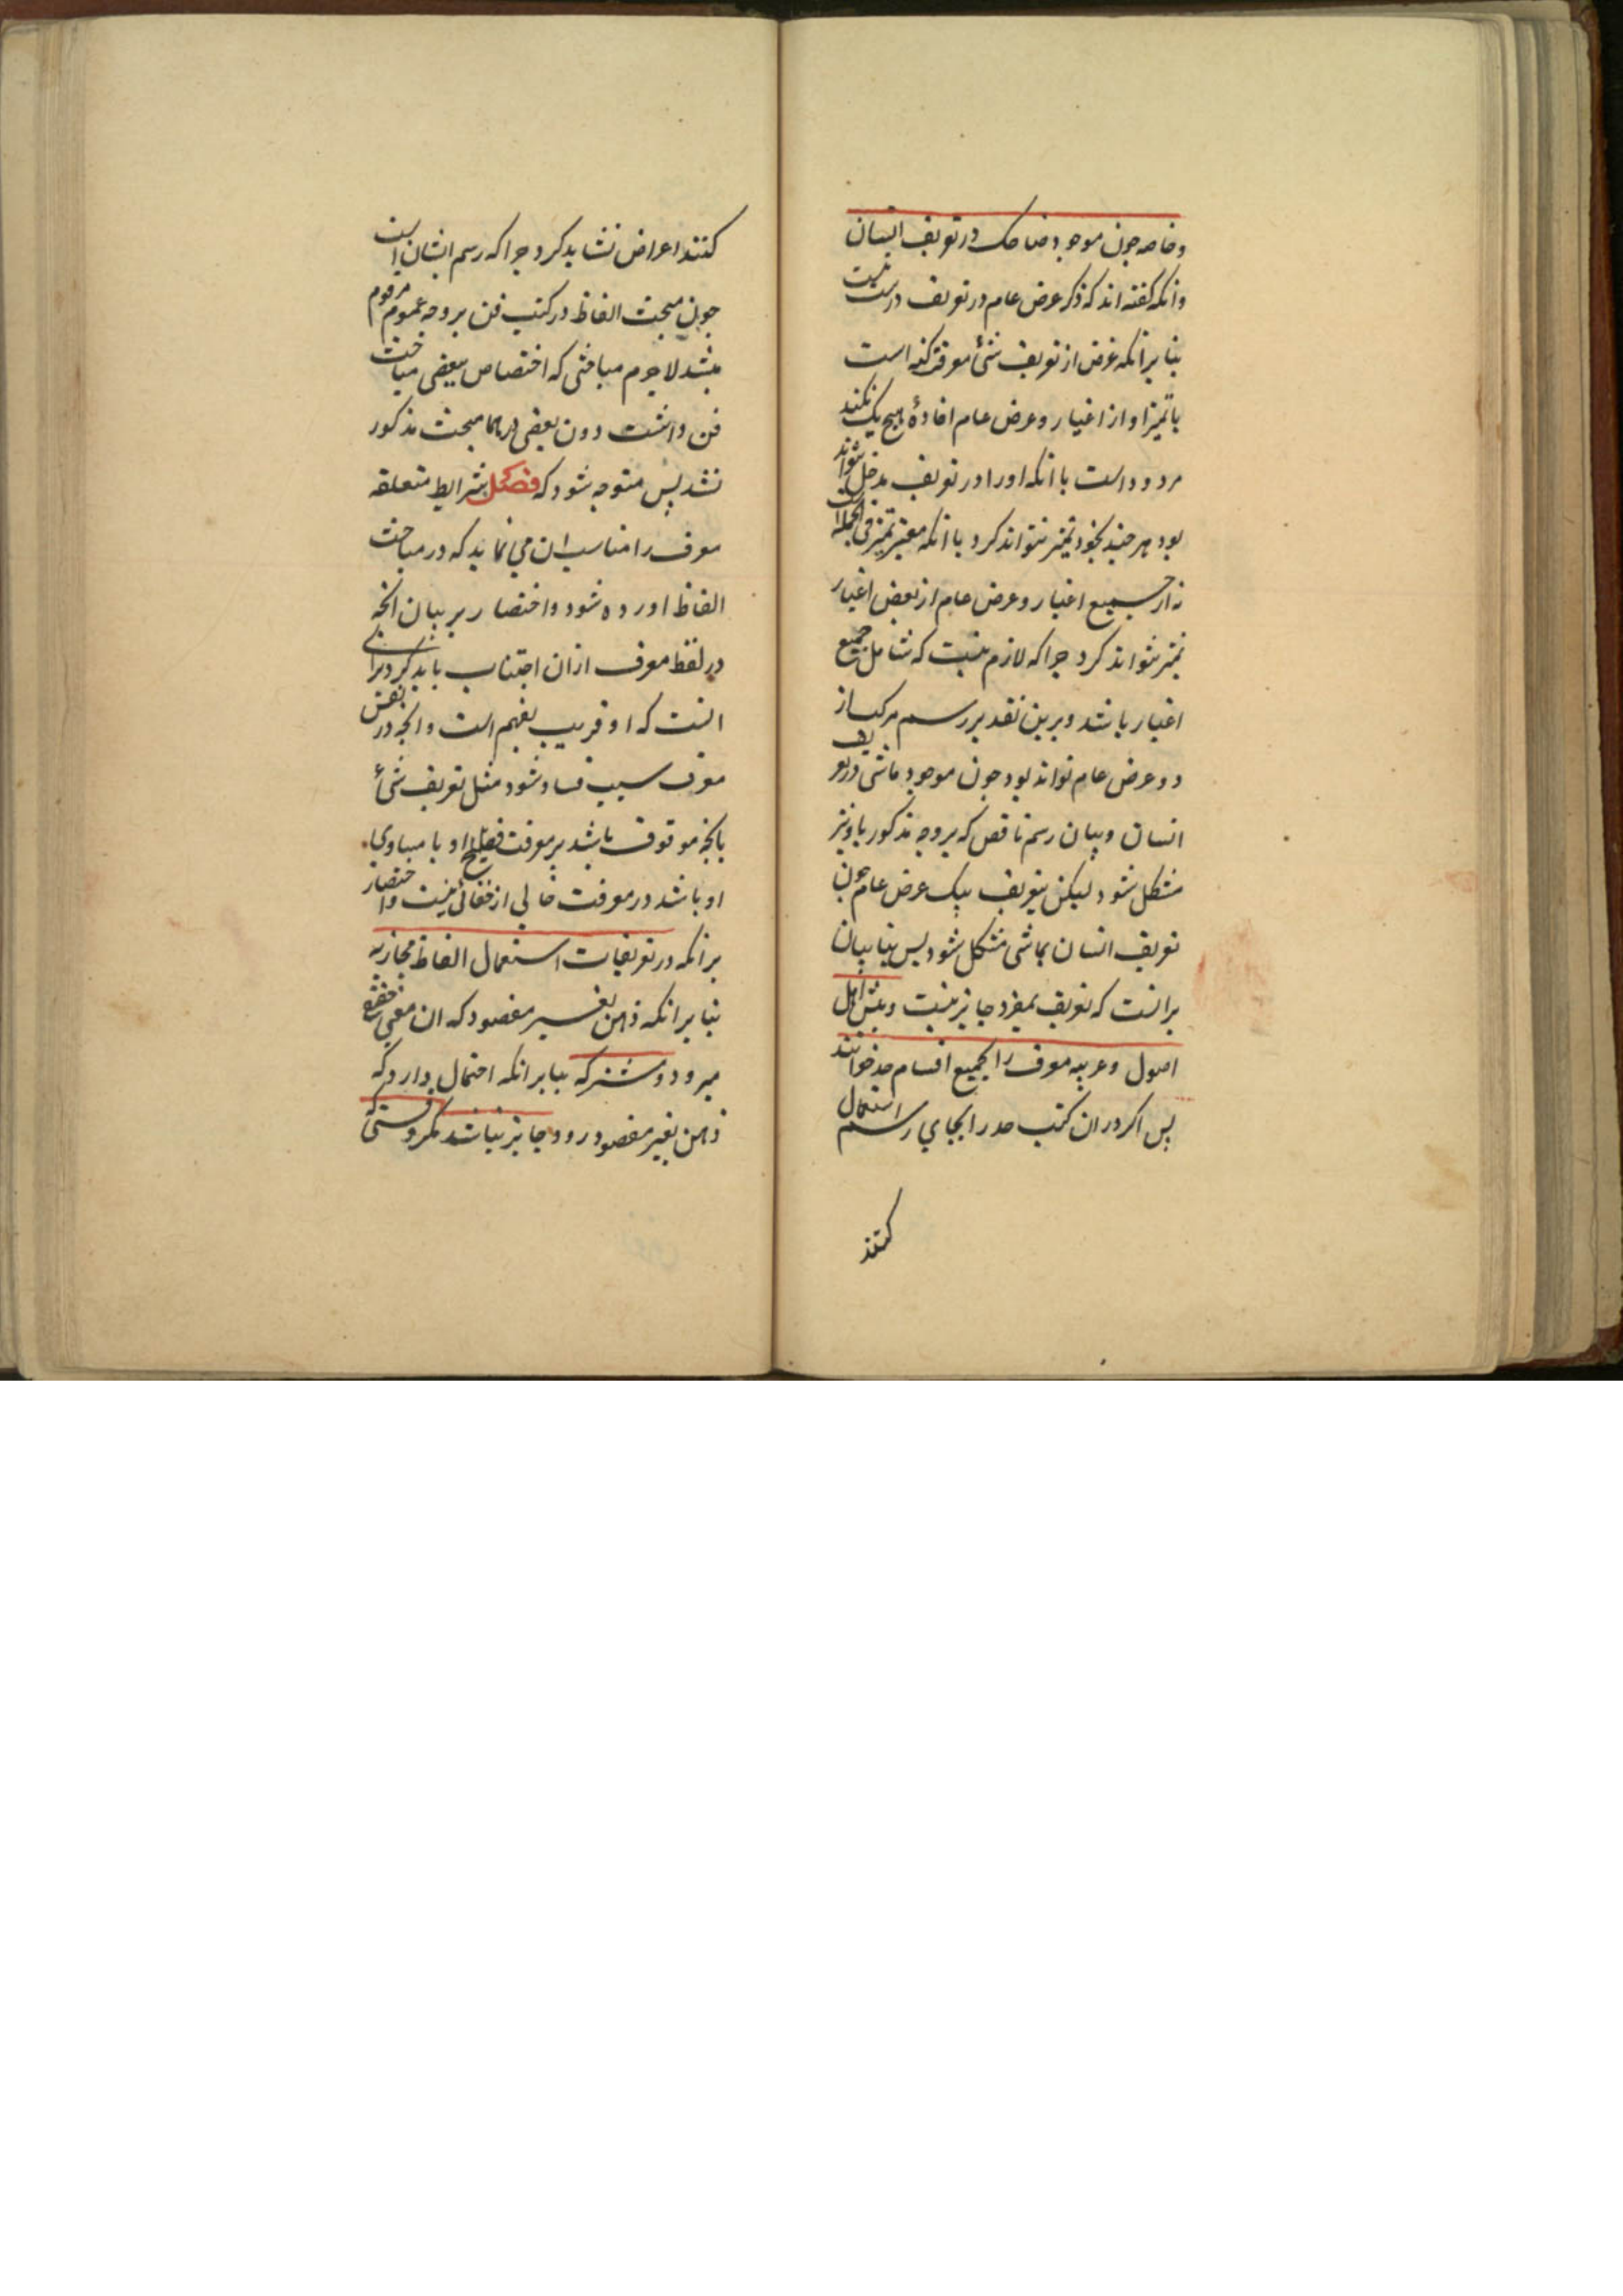 وخاصه جون موجود ضاحک در تعریف انسان
وانکه کفته اند که ذکر عرض عام در تعریف درست نیست
بنا برانکه غرض از تعریف شئ معرفت کنه است
یا تمیز او از اغیار و عرض عام افادهٔ هیج یک نکند
مردود است با انکه اورا در تعریف مدخل تواند
بود هر جند بخود تمیز نتواند کرد با انکه معتبر تمیز فی الجمله است
نه از جمیع اغیار و عرض عام از بعض اغیار
تمیز تواند کرد جرا که لازم نیست که شامل جمیع
اغیار باشد و برین تقدیر رسم مرکب از
دو عرض عام تواند بود جون موجود ماشی در تعریف
انسان و بیان رسم ناقص که بر وجه مذکور یا ونیز
مشکل شود لیکن بتعریف بیک عرض عام جون
تعریف انسان بماشی مشکل شود بس بنا بیان
برانست که تعریف بمفرد جایز نیست و بیش اهل
اصول و عربیه معرف را بجمیع اقسام حد خوانند
بس اکر در ان کتب حد را بجای رسم استعمال
کنند
کنند اعراض نشاید کرد جرا که رسم ایشان است
جون مبحث الفاظ در کتب فن بر وجه عموم مرقوم
میشد لاجرم مباحثی که اختصاص ببعضی مباحث
فن داشت دون بعضی درهما مبحث مذکور
نشد بس متوجه شود که فصل شرایط متعلقه
معرف را مناسب ان می نماید که در مباحث
الفاظ اورده شود و اختصار بر بیان انجه
در لفظ معرف ازان اجتناب باید کرد برای
انست که او قریب بفهم است و انجه در نفس
معرف سبب فساد شود مثل تعریف شئ
بانجه موقوف باشد بر معرفت او یا مساوی
او باشد در معرفت خالی از خفائی نیست و اختصار
برانکه در تعریفات استعمال الفاظ مجازیه
بنا برانکه ذهن بغیر مقصود که ان معنی حقیقیست
میرود و مشترکه بنا برانکه احتمال دارد که
ذهن بغیر مقصود رود جایز نباشد مکر وقتی که